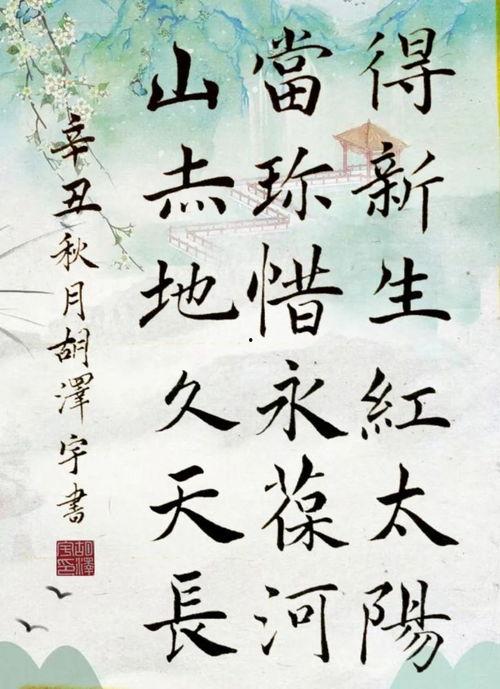 得新生紅太陽
當珍惜永葆河
山赤地久天長
辛丑秋月胡澤宇書
胡澤
宇印